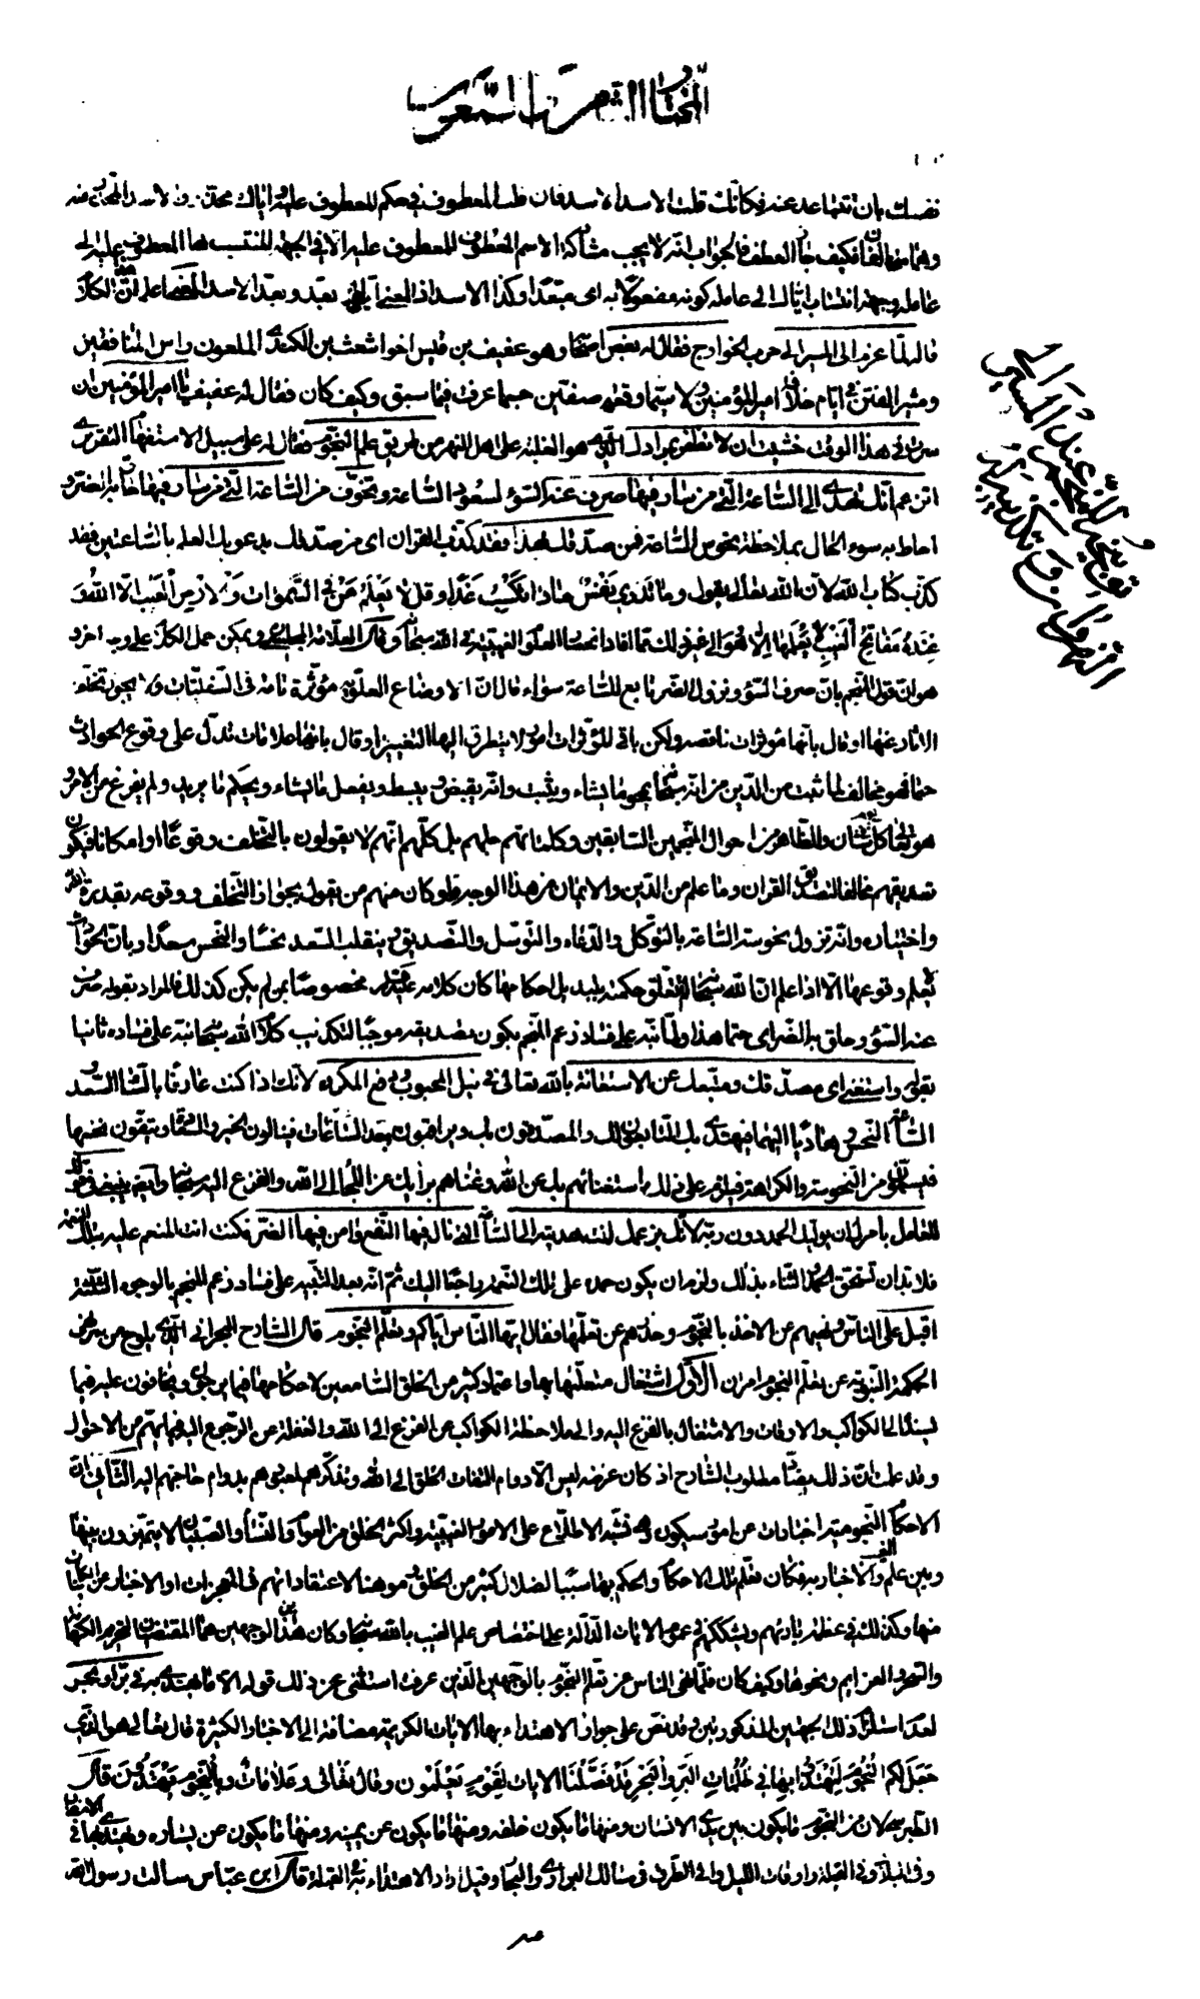 المختار الثامن والسبعون
نفسك بان تتباعد عنه فكانك قلت الاسد الاسد فان قلت المعطوف في حكم المعطوف عليه واياك محذر والاسد المحذر منه
وهما متخالفان فكيف جاز العطف فالجواب انه لا يجب مشاركة الاسم المعطوف للمعطوف عليه الا في الجهة المنتسب بها المعطوف عليه الى
عامله وجهة انتساب اياك الى عامله كونه مفعولا به اى مبعدا وكذا الاسد اذ المعنى اياك بعد وبعد الاسد المعنى اعلم ان هذا الكلام
قاله لما عزم الى المسير الى حرب الخوارج فقال له بعض اصحابه وهو عفيف بن قيس اخو اشعث بن الكندي الملعون راس المنافقين
ومثير الفتن في ايام خلافة امير المؤمنين لا سيما وقعة صفين حسبما عرفت فيما سبق وكيف كان فقال له عفيف يا امير المؤمنين ان
سرت في هذا الوقت خشيت ان لا تظفر بمرادك الذي هو الغلبة على اهل النهر من طريق علم النجوم فقال له على سبيل الاستفهام التقريري
اتزعم انك تهدي الى الساعة التي من سار فيها صرف عنه السوء لسعود الساعة وتخوف من الساعة التي من سار فيها حاق به الضر و
احاط به سوء الحال بملاحظة نحوس الساعة فمن صدقك بهذا فقد كذب القران اى من صدقك بدعويك العلم بالساعتين فقد
كذب كتاب الله لان الله تعالى يقول وما تدري نفس ماذا تكسب غدا وقل لا يعلم من في السموات والارض الغيب الا الله و
عنده مفاتح الغيب لا يعلمها الا هو الى غير ذلك مما افاد انحصار العلم الغيبية في الله سبحانه وقال العلامة المجلسي ويمكن حمل الكلام على وجه اخر و
هو ان قول المنجم بان صرف السوء ونزول الضر تابع للساعة سواء قال ان الاوضاع العلوية مؤثرة تامة في السفليات ولا يجوز تخلف
الاثار عنها او قال بانها مؤثرات ناقصة ولكن باقي المؤثرات امور لا يتطرق اليها التغيير او قال بانها علامات تدل على وقوع الحوادث
حتما فهو مخالف لما ثبت من الدين من انه سبحانه يمحو ما يشاء ويثبت وانه يقبض ويبسط ويفعل ما يشاء ويحكم ما يريد ولم يفرغ من الامر و
هو تعالى كل يوم في شان والظاهر من احوال المنجمين السابقين وكلماتهم جلهم بل كلهم انهم لا يقولون بالتخلف وقوعا او امكانا فيكون
تصديقهم مخالفا لتصديق القران وما علم من الدين والايمان من هذا الوجه ولو كان منهم من يقول بجواز التخلف ووقوعه بقدرة الله
واختياره وانه تزول نحوسة الساعة بالتوكل والدعاء والتوسل والتصدق وينقلب السعد نحسا والنحس سعدا وبان الحوادث
لا يعلم وقوعها الا اذا علم ان الله سبحانه لم تتعلق حكمته بتبديل احكامها كان كلامه مخصوصا بمن لم يكن كذلك فالمراد بقوله صرف
عنه السوء وحاق به الضر اى حتما هذا ولما نبه على فساد زعم المنجم بكون تصديقه موجبا لتكذيب كلام الله سبحانه نبه على فساده ثانيا
بقوله واستغنى اى مصدقك ومتبعك عن الاستعانة بالله تعالى في نيل المحبوب ودفع المكروه لانك اذا كنت عارفا بالساعة السعد و
الساعة النحس هاديا اليهما فيهتدي بك التابعون لك والمصدقون بك ويراقبون بعد الساعات فينالون الخير والسعادة ويتقون نحسها
فيسلمون من النحوسة والكراهة فيلزم على ذلك استغنائهم بك عن الله وغناهم برأيك عن اللجأ الى الله والفزع اليه سبحانه وايضا ينبغى في قولك
للعامل بامرك ان يوليك الحمد دون ربه لانك بزعمك انت هديته الى الساعة التي نال فيها النفع وامن فيها الضر فكنت انت المنعم عليه بتلك النعمة
فلا بد ان تستحق الحمد والثناء بذلك ولزم ان يكون حمده على تلك النعمة راجعا اليك ثم انه بعد التنبيه على فساد زعم المنجم بالوجوه الثلثة
اقبل على الناس ونهيهم عن الاخذ بالنجوم وحذرهم عن تعلمها فقال ايها الناس اياكم وتعلم النجوم قال الشارح البحراني الذي يلوح من سر نهي
الحكمة النبوية عن تعلم النجوم امران الاول اشتغال متعلمها بها واعتماد كثير من الخلق السامعين لاحكامها فيما يرجون ويخافون عليه فيما
يسنده الى الكواكب والاوقات والاشتغال بالفزع اليه والى ملاحظة الكواكب عن الفزع الى الله والغفلة عن الرجوع اليه فيما يهم من الاحوال
وقد علمت ان ذلك يضاد مطلوب الشارع اذ كان غرضه ليس الا دوام التفات الخلق الى الله وتذكرهم لمعبودهم بدوام حاجتهم اليه الثاني ان
الاحكام النجومية اخبارات عن امور سيكون وهي تشبه الاطلاع على الامور الغيبية واكثر الخلق من العوام والنساء والصبيان لا يتميزون بينها
وبين علم الغيب والاخبار به فكان تعلم تلك الاحكام والحكم بها سببا لضلال كثير من الخلق وموهنا لاعتقاداتهم في المعجزات اذ الاخبار عن الكائنات
منها وكذلك في عظمة بارئهم ويشككهم في عموم الايات الدالة على اختصاص علم الغيب بالله سبحانه وكان هذين الوجهين هما المقتضيان لتحريم الكهانة
والسحر والعزايم ونحوها وكيف كان فلما نهى الناس عن تعلم النجوم بالوجهين الذين عرفت استثنى من ذلك قوله الا ما يهتدى به في بر او بحر
لعدم استلزام ذلك لجهتين المذكورتين وقد نص على جواز الاهتداء بها الايات الكريمة مضافة الى الاخبار الكثيرة قال تعالى هو الذي
جعل لكم النجوم لتهتدوا بها في ظلمات البر والبحر قد فصلنا الايات لقوم يعلمون وقال تعالى وعلامات وبالنجم هم يهتدون قال
الطبرسي لان من النجوم ما يكون بين يدي الانسان ومنها ما يكون خلفه ومنها ما يكون عن يمينه ومنها ما يكون عن يساره ويهتدى بها في الاسفار
وفي البلاد وفي القبلة واوقات الليل والى الطرق في مسالك البراري والبحار وقيل اراد الاهتداء به في القبلة قال ابن عباس سالت رسول الله
توبيخه للمنجم عند المسير الى
النهروان وتكذيبه